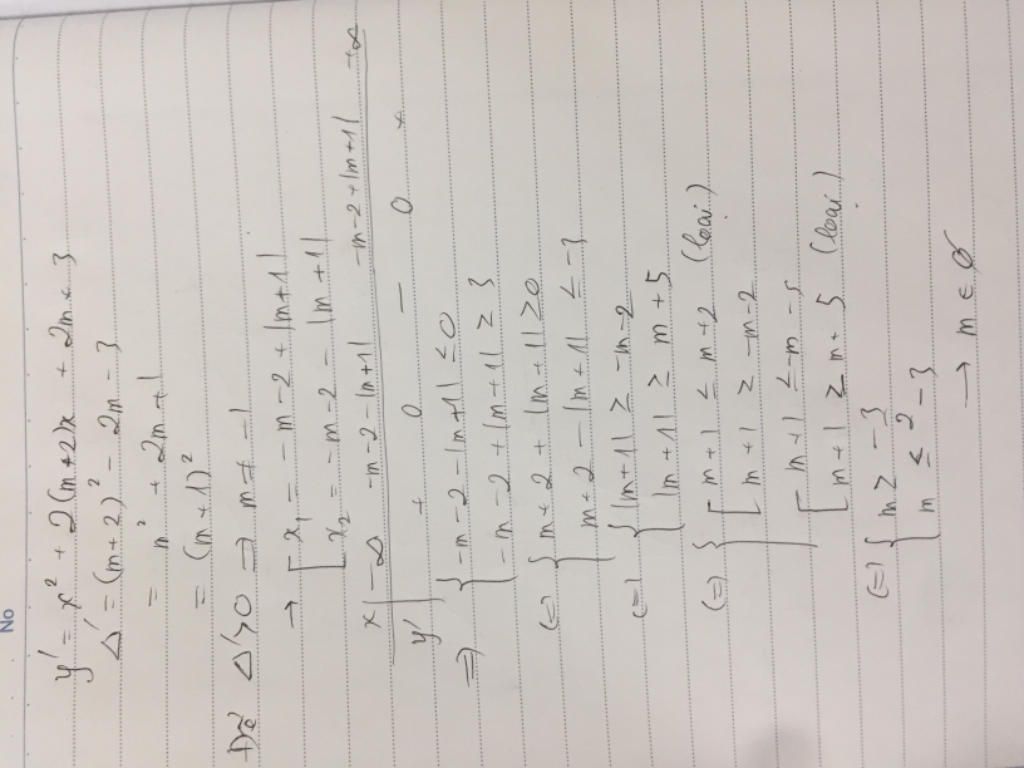 No
y' = x² + 2(m+2)x + 2m + 3
Δ' = (m+2)² - 2m - 3
= m² + 2m + 1
= (m+1)²
Để Δ' > 0 ⇒ m ≠ -1
→ [ x₁ = -m-2 + |m+1|
[ x₂ = -m-2 - |m+1|
x | -∞ -m-2-|m+1| -m-2+|m+1| +∞
y' | + 0 - 0 +
⇒ { -m-2-|m+1| ≤ 0
{ -m-2+|m+1| ≥ 3
(=) { m+2 + |m+1| ≥ 0
{ m+2 - |m+1| ≤ -3
(=) { |m+1| ≥ -m-2
{ |m+1| ≥ m+5
(=) { [ m+1 ≤ m+2 (loại)
[ m+1 ≥ -m-2
[ m+1 ≤ -m-5
[ m+1 ≥ m+5 (loại)
(=) { m ≥ -3/2
{ m ≤ -3
→ m ∈ ∅